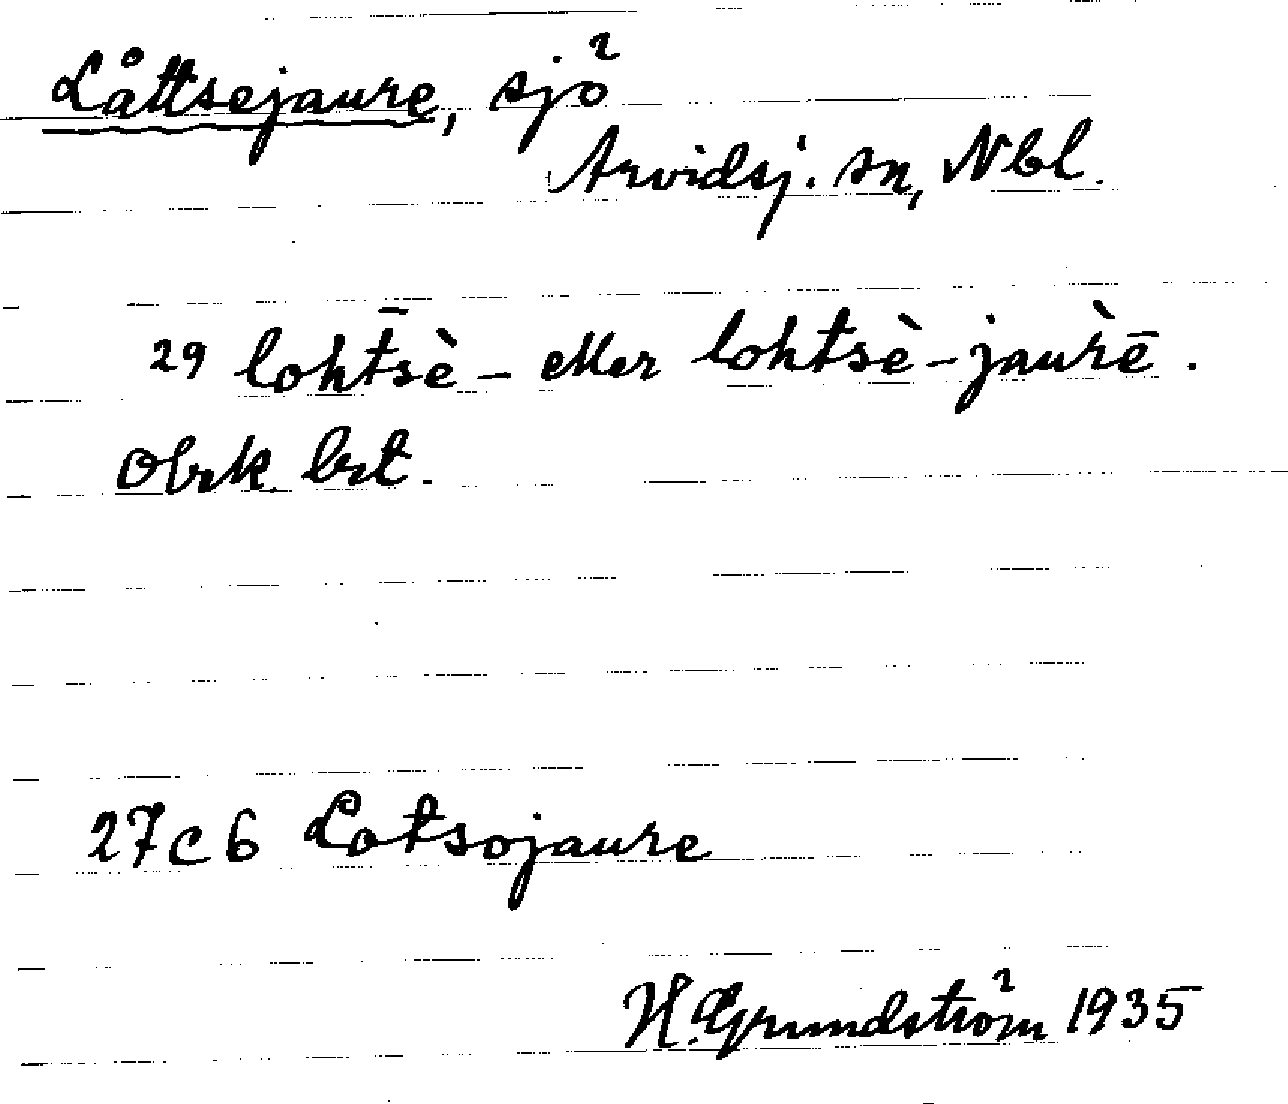 Låttsejaure, sjö
Arvidsj. sn, Nbl.
29 loht̄sè- eller lohtsè-jaùrē.
Obrk. brt.
27c6 Lotsojaure
H. Grundström 1935